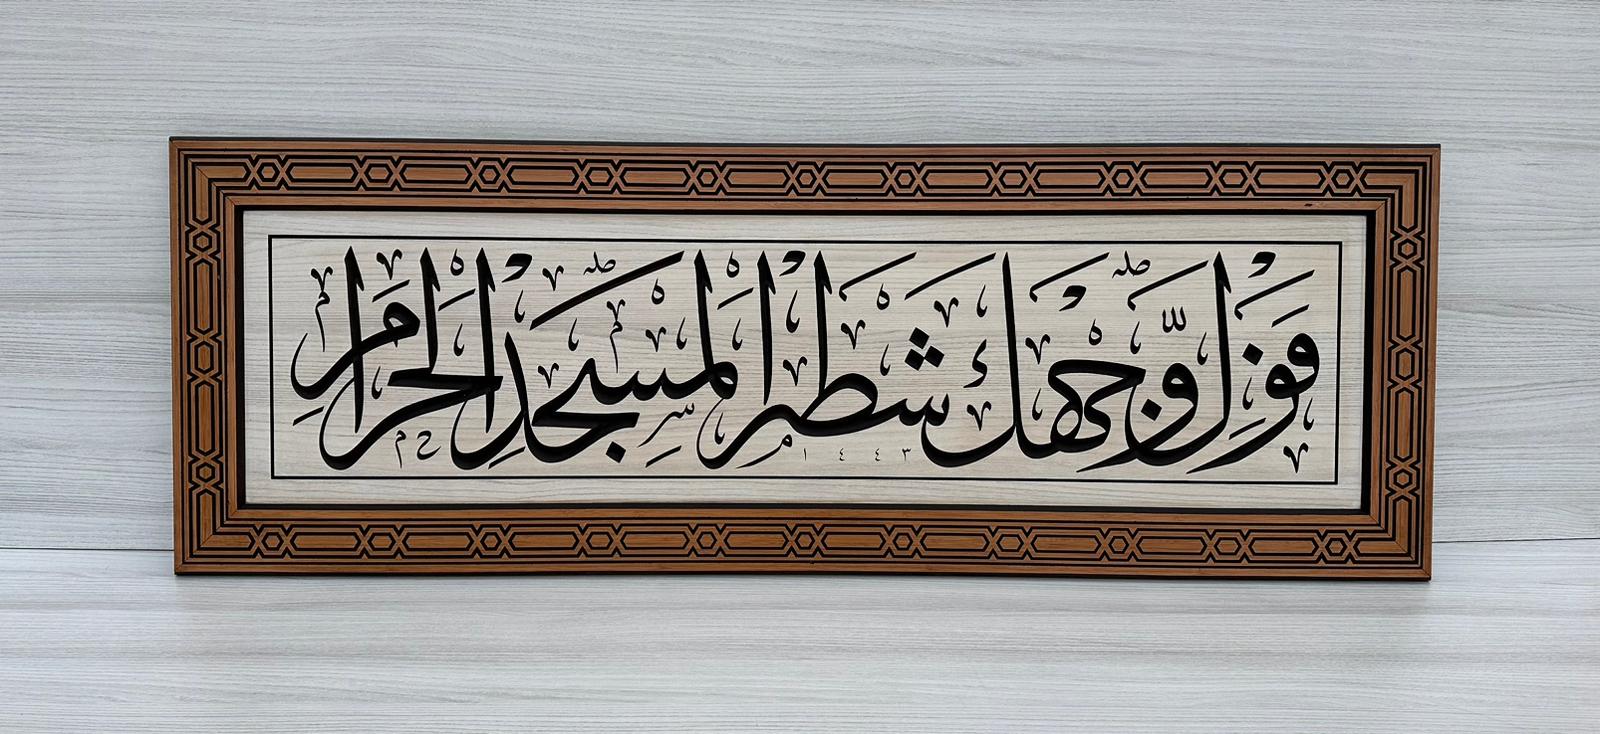 فَوَلِّ وَجْهَكَ شَطْرَ الْمَسْجِدِ الْحَرَامِ
١٤٤٣